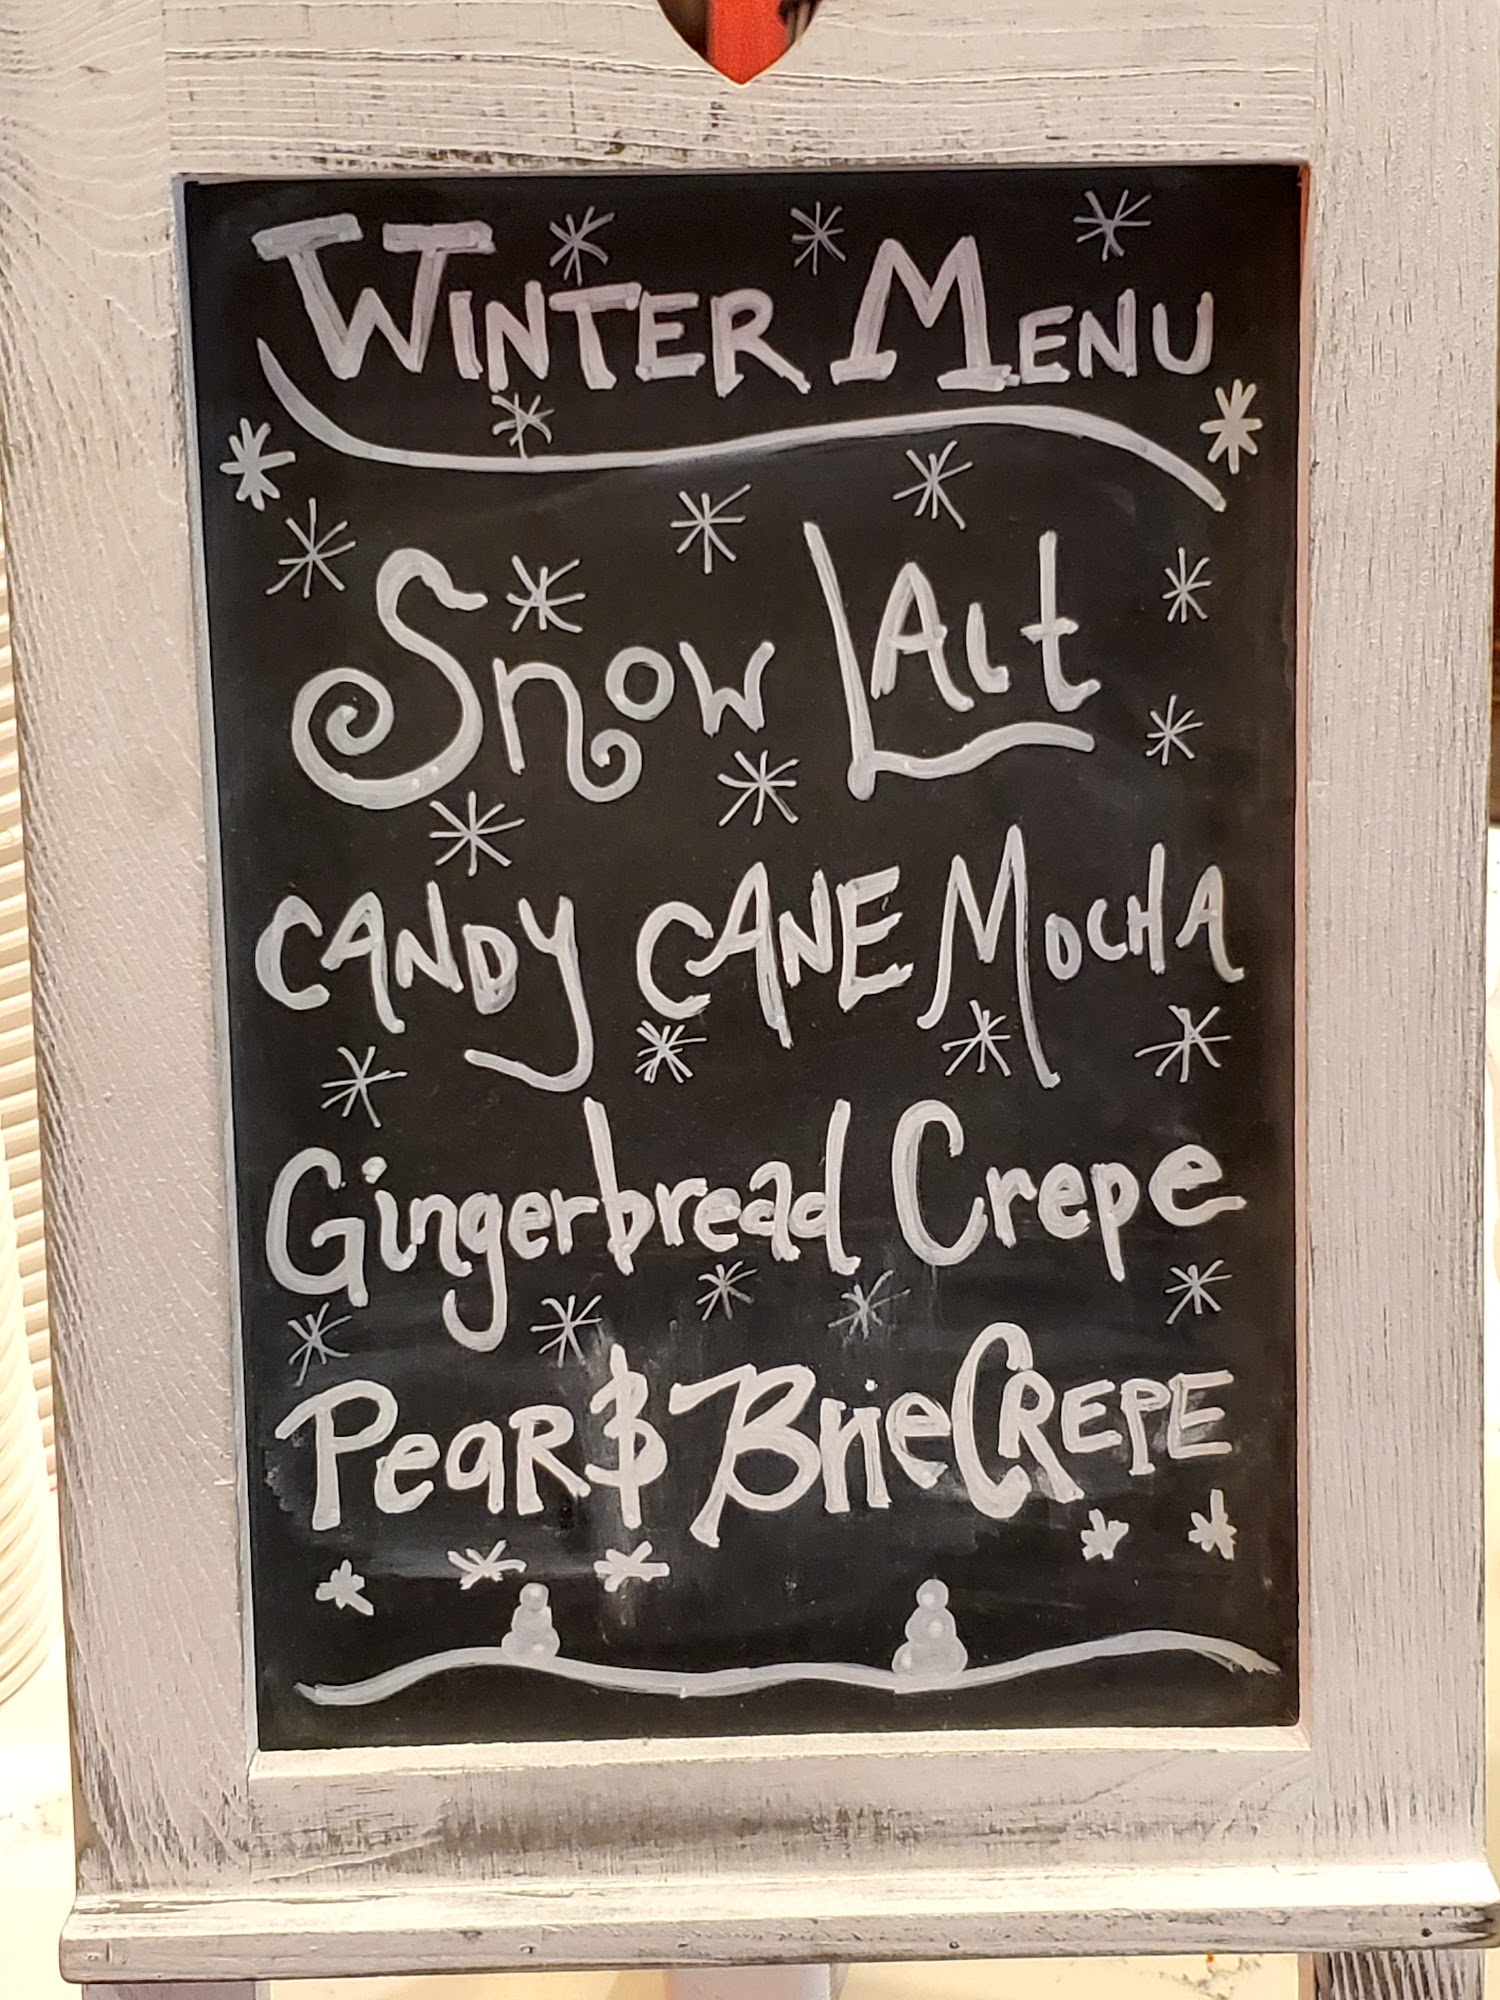 WINTER MENU
Snow LAit
CANDY CANE MOCHA
Gingerbread Crepe
PeaR & Brie CREPE